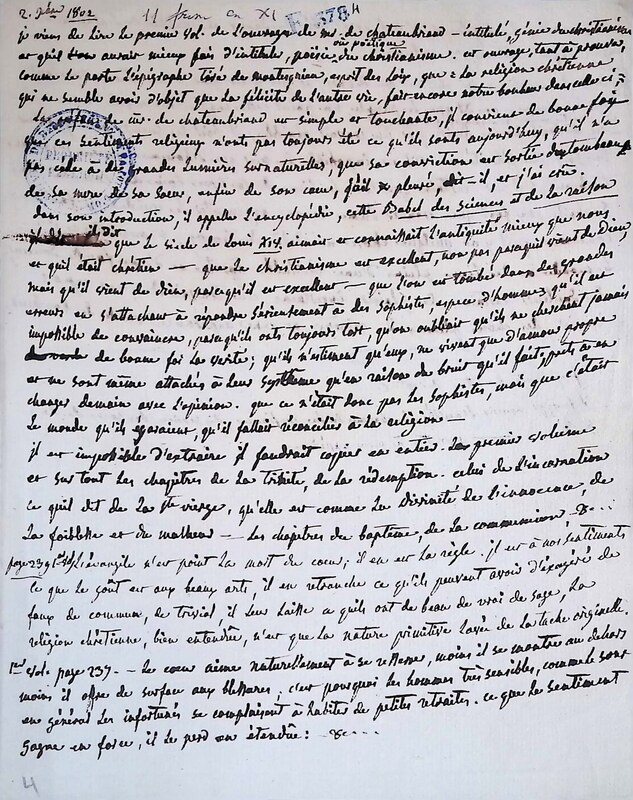 2. 1802 11 an XI F 378 H
je viens de lire le premier vol. de l'ouvrage de mr. de chateaubriand - intitulé, génie du christianisme
et qu'il aurait mieux fait d'intituler, poésie ou poëtique du christianisme. cet ouvrage, tend à prouver,
comme le porte l'épigraphe tirée de montesquieu, esprit des loix, que la religion chrétienne
qui ne semble avoir d'objet que la félicité de l'autre vie, fait encore notre bonheur dans celle ci;
La de mr. de chateaubriand est simple et touchante, il convient de bonne foi
que ces sentiments religieux n'ont pas toujours été ce qu'ils sont aujourd'huy, qu'il n'a
pas cédé à de grandes lumières surnaturelles, que sa conviction est sortie des tombeaux
de sa mere, de sa soeur, enfin de son coeur, j'ai pleuré, dit-il, et j'ai cru.
dans son introduction, il appelle l'encyclopédie, cette Babel des sciences et de la raison
il dit que le siècle de Louis XIV, aimait et connaissait l'antiquité mieux que nous
et qu'il était chrétien — que le christianisme est excellent, non pas parcequ'il vient de Dieu,
mais qu'il vient de dieu, parcequ'il est excellent — que l'on est tombé dans des grandes
erreurs en s'attachant à répondre sérieusement à des sophistes, espece d'hommes qu'il est
impossible de convaincre, parcequ'ils ont toujours tort, qu'on oubliait qu'ils ne cherchent jamais
de bonne foi la verité; qu'ils n'estiment qu'eux, ne vivent que d'amour propre
et ne sont même attachés à leur système qu'en raison du bruit qu'il fait, prets à en
changer demain avec l'opinion. que ce n'était donc pas les sophistes, mais que c'était
le monde qu'ils égaraient, qu'il fallait réconcilier à la religion —
il est impossible d'extraire il faudrait copier en entier. Le premier volume
et sur tout les chapitres de la trinité, de la rédemption. celui de l'incarnation
ce qu'il dit de la Ste vierge, qu'elle est comme la Divinité de l'innocence, de
la foiblesse et du malheur — Les chapitres du baptême, de la communion &...
page 239 1er vol L'évangile n'est point la mort du coeur; il en est la règle. il est à nos sentiments
ce que le goût est aux beaux arts, il en retranche ce qu'ils peuvent avoir d'éxagéré de
faux de commun, de trivial, il leur laisse ce qu'ils ont de beau de vrai de sage, La
religion chrétienne, bien entendue, n'est que la nature primitive lavée de la tache originelle.
1er vol. page 237. - Le coeur aime naturellement à se resserrer, moins il se montre au dehors
moins il offre de surface aux blessures; c'est pourquoi les hommes très sensibles, comme le sont
en général les infortunés se complaisent à habiter de petites retraites. ce que le sentiment
gagne en force, il le perd en étendue: &....
4